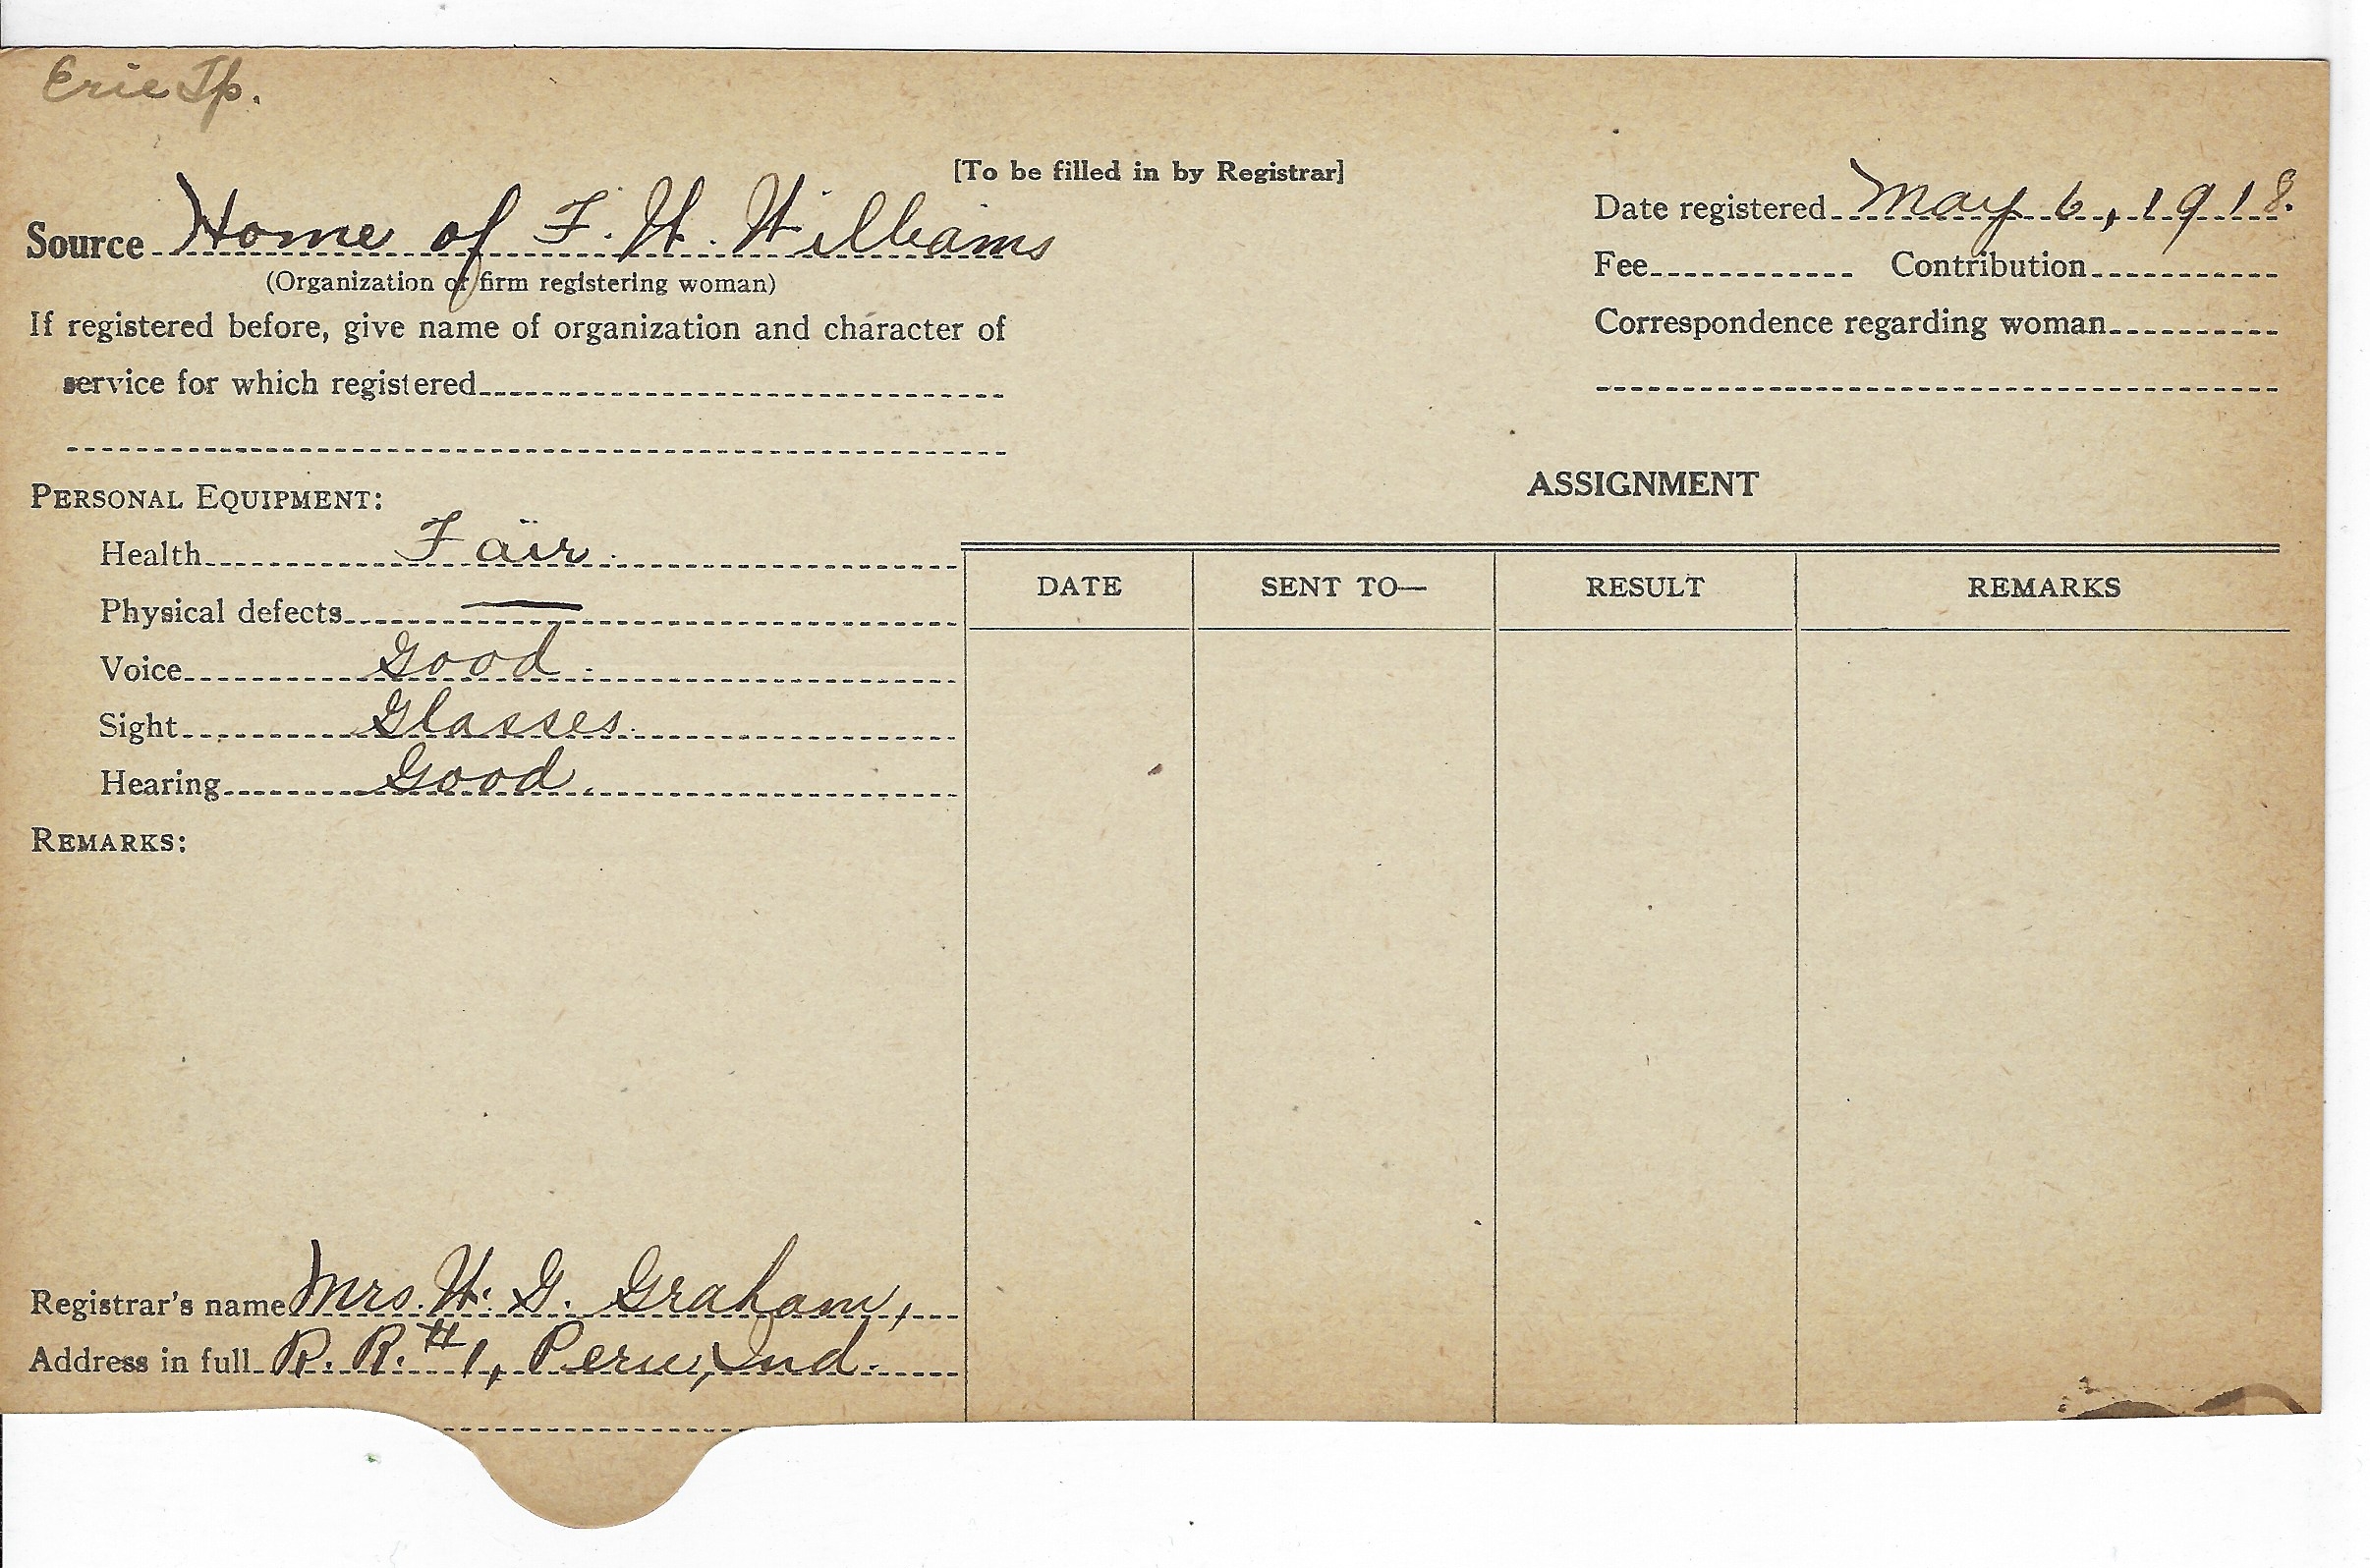 Erie Tp.
[To be filled in by Registrar]
Source Home of F. W. Williams
(Organization or firm registering woman)
If registered before, give name of organization and character of
service for which registered
Date registered May 6, 1918.
Fee Contribution
Correspondence regarding woman
PERSONAL EQUIPMENT:
Health Fair.
Physical defects —
Voice Good.
Sight Glasses.
Hearing Good.
REMARKS:
ASSIGNMENT
DATE SENT TO— RESULT REMARKS
Registrar's name Mrs. W. G. Graham,
Address in full R. R. #1, Peru, Ind.